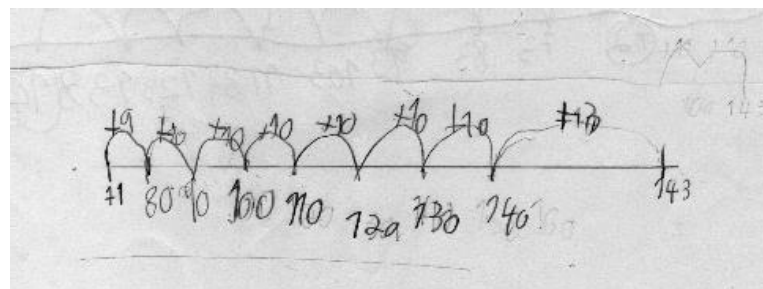 +9 +10 +10 +10 +10 +10 +10
71 80 90 100 110 120 130 140 143